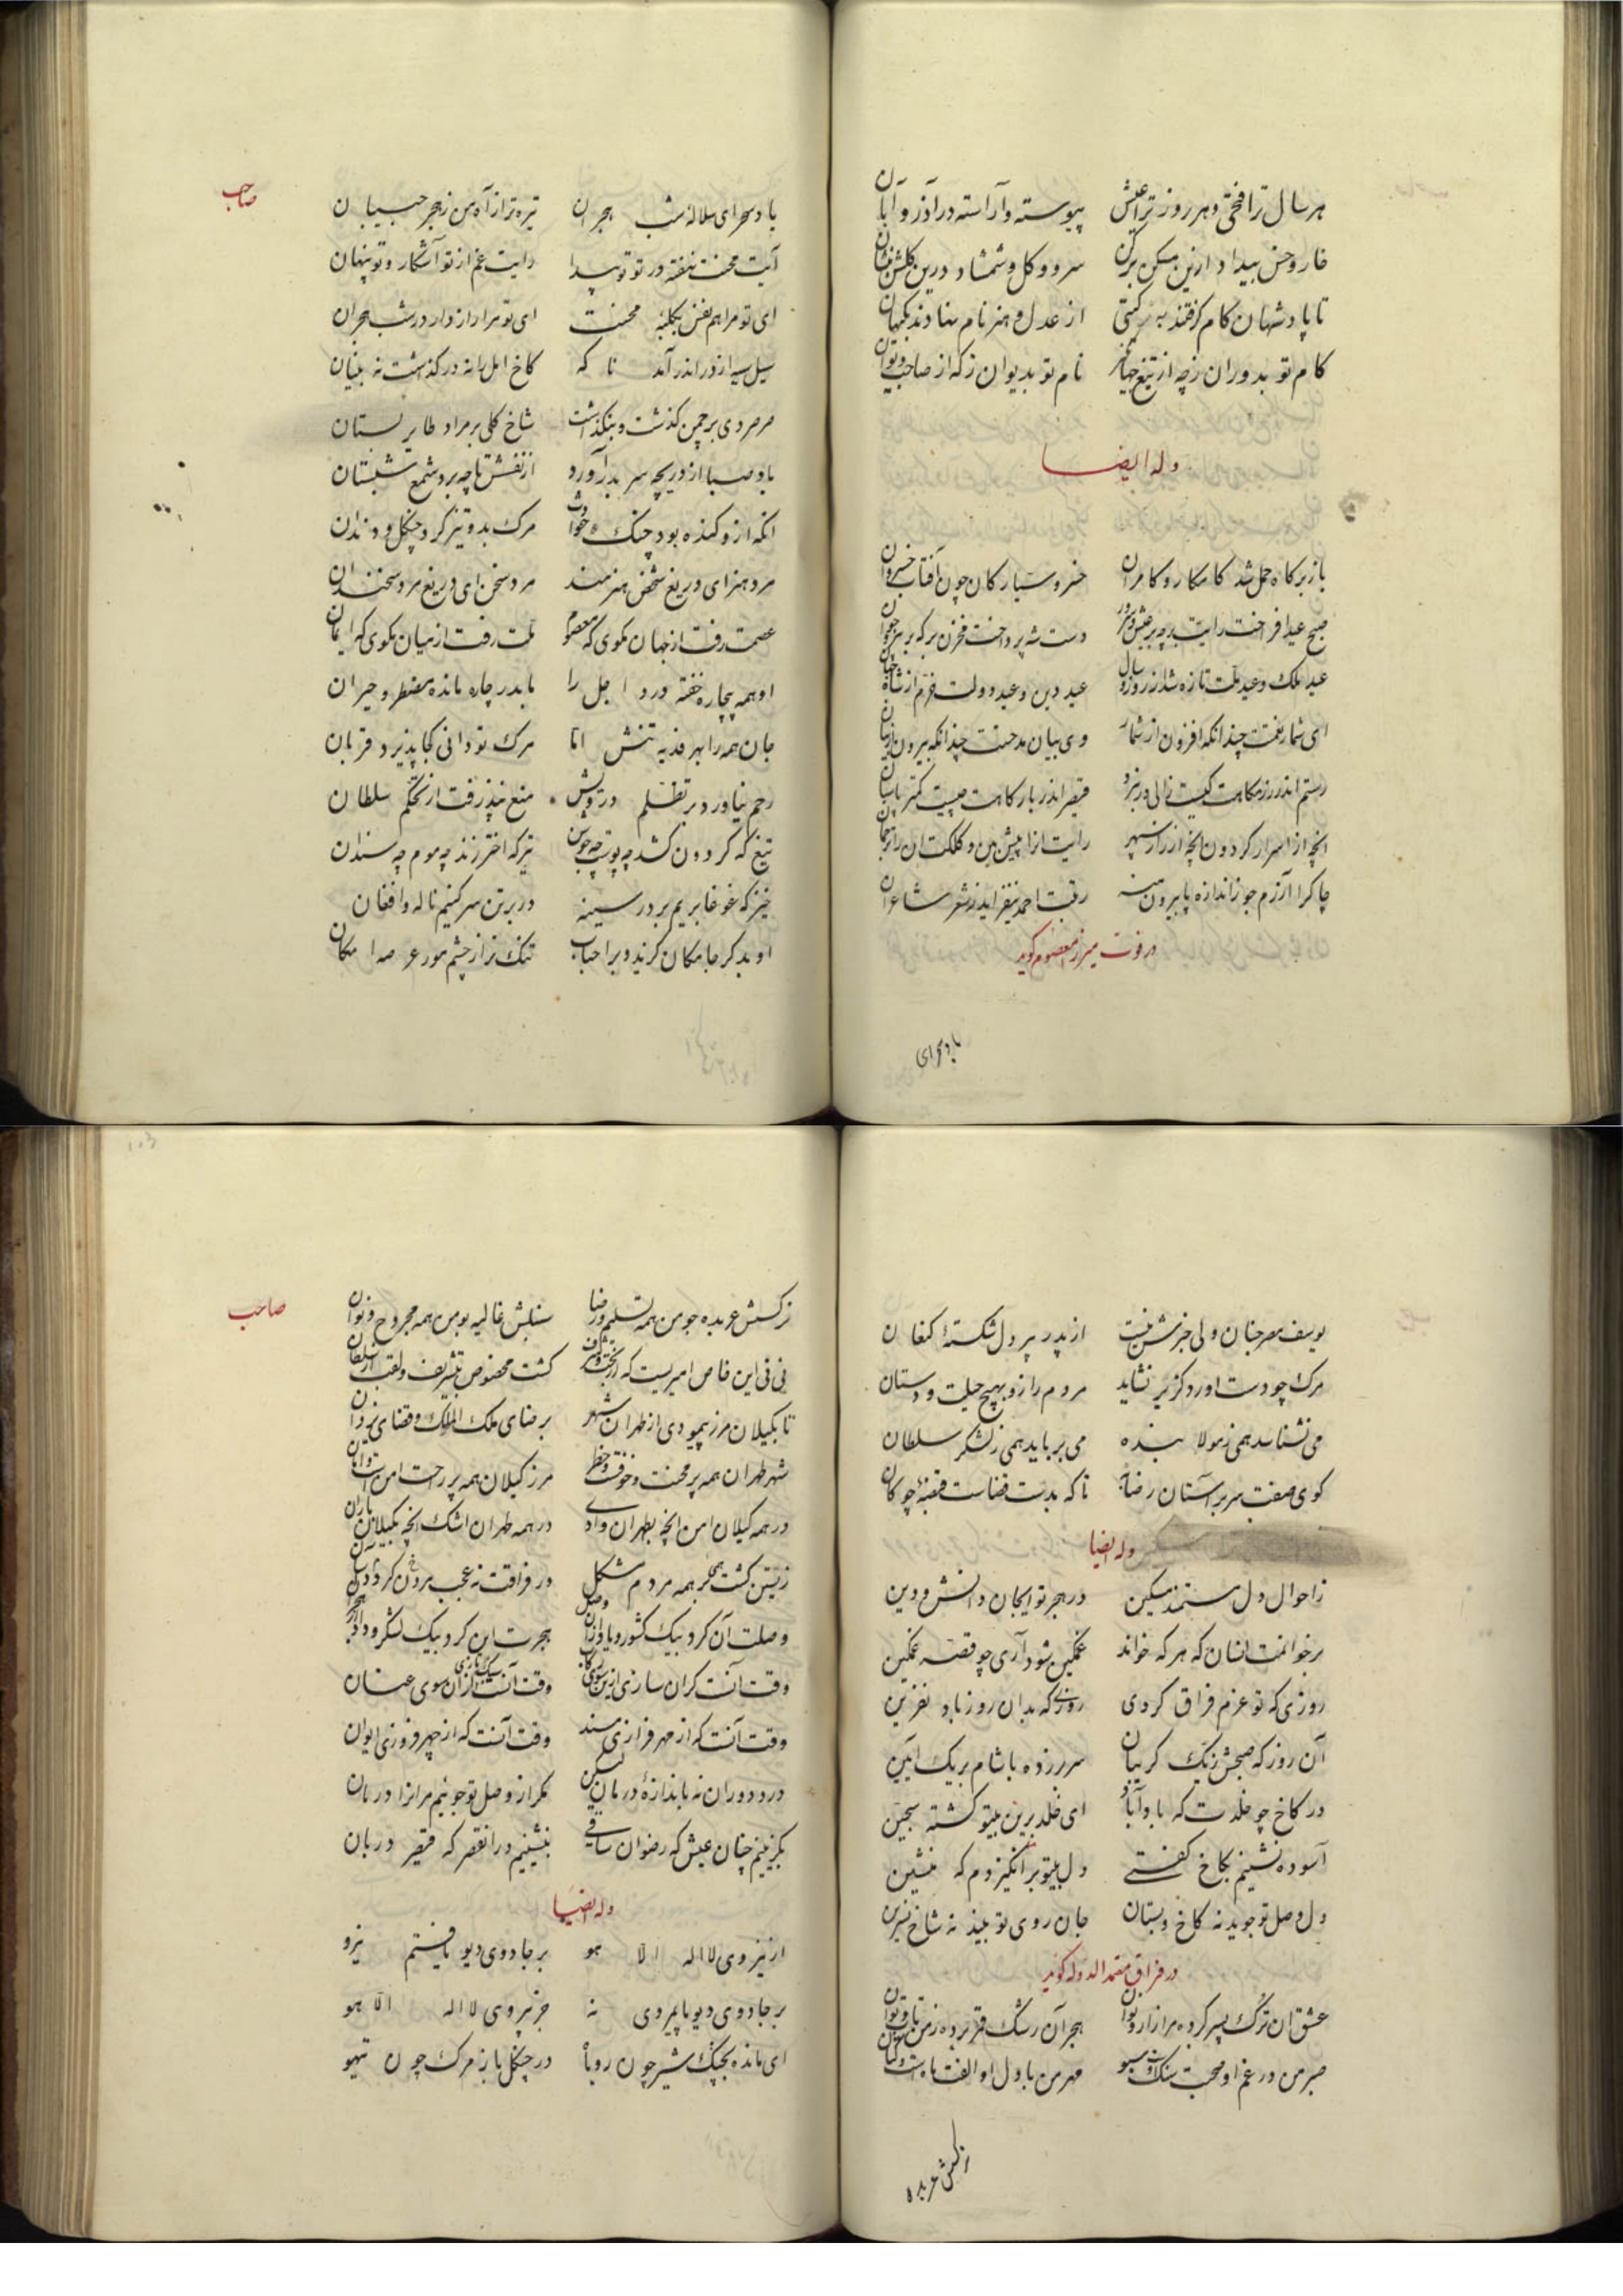 هر سال ترا فخری و هر روز ترا عیش پیوسته و آراسته در آذر و آبان
خار و خس بیداد ازین مسکن برکن سرو و کل و شمشاد درین کلشن بنشان
تا پادشهان کام کرفتند به کیتی از عدل و هنر نام نهادند بکیهان
کام تو بدوران ز چه از تیغ جهانگیر نام تو بدیوان ز که از صاحب دیوان
وله ایضا
باز بر کاه حمل شد کامکار و کامران خسرو سیارکان چون آفتاب خسروان
صبح عید افراخت رایت بر چه بر عیش و سرور دست شه پرداخت مخزن بر که بر پیر و جوان
عید ملک و عید ملت تازه شد از روز و سال عید دین و عید دولت خرم از شاه جهان
ای شمار نعمتت چندانکه افزون از شمار وی بیان مدحتت چندانکه بیرون از بیان
رستم اندر رزمکاهت کیست زالی در نبرد قیصر اندر بارکاهت چیست کمتر پاسبان
انچه از اسرار کردون انچه از راز سپهر رایت انرا پیش بین و کلکت ان را ترجمان
چاکرا آزرم جو ز اندازه پا بیرون منه رتبت احمد نیفزاید ز شعر شاعران
در فوت میرزا معصوم کوید
باد سحرای
صاحب
باد سحر ای سلاله شب هجران تیره تر از آه من ز هجر حبیبان
آیت محنت نهفته در تو تو پیدا رایت غم از تو آشکار و تو پنهان
ای تو مرا هم نفس بکلبه محنت ای تو مرا رازدار در شب هجران
سیل سیه از در اندر آمد تا که کاخ امل را نه در کذاشت نه بنیان
صرصر دی بر چمن کذشت و بنکذاشت شاخ کلی بر مراد طایر بستان
باد صبا از دریچه سر بدر آورد از نفسش تا چه برد شمع شبستان
انکه ازو کنده بود چنک حوادث مرک بدو تیز کرد چنکل و دندان
مرد هنر ای دریغ شخص هنرمند مرد سخن ای دریغ مرد سخندان
عصمت رفت از جهان مکوی که معصوم ملت رفت از میان مکوی که ایمان
او همه بیچاره خفته درد اجل را ما بدر چاره مانده مضطر و حیران
جان همه را بهر فدیه تنش اما مرک تو دانی کجا پذیرد قربان
رحم نیاورد بر تظلم درویش منع نپذرفت از تحکم سلطان
تیغ که کردون کشد چه پوست چه جوشن تیر که اختر زند چه موم چه سندان
خیز که غوغا بریم بر در سینه در بر تن سر کنیم ناله و افغان
او بدکر جا مکان کزید و بر احباب تنک تر از چشم مور عرصه امکان
یوسف مصر جنان ولی خبرش نیست از پدر پیر دل شکسته کنعان
مرک چو دست اورد کزیر نشاید مردم را زو بهیچ حیلت و دستان
می نشناسد همی ز مولا بنده می برباید همی ز لشکر سلطان
کوی صفت سر بر آستان رضا نه تا که بدست قضاست قبضه چوکان
وله ایضا
ز احوال دل مستمند مسکین در هجر تو ای جان دانش و دین
بر خوانمت انسان که هر که خواند غمکین شود آری چو قصه غمکین
روزی که تو عزم فراق کردی روزی که بدان روز باد نفرین
آن روز که صبحش ز یک کریبان سر برزده با شام بر یک آیین
در کاخ چو خلدت که باد آباد ای خلد برین بیتو کشته سجین
آسوده نشینم بکاخ کفتی دل بیتو بر انکیزدم که منشین
دل وصل تو جوید نه کاخ و بستان جان روی تو بیند نه شاخ نسرین
در فراق معتمد الدوله کوید
عشق ان ترک پسر کرده مرا زار و نوان هجر آن رشک قمر برده ز من تاب و توان
صبر من در غم او صحبت سنک است و سبو مهر من با دل او الفت ماه است و کتان
نرکسش عربده
صاحب
نرکسش عربده جو من همه تسلیم و رضا سنبلش غالیه بو من همه مجروح و نوان
نی نی این خاص امیریست که از بخت و شرف کشت مخصوص بتشریف و لقب از سلطان
تا بکیلان مرز پیمودی از طهران شهر بر رضای ملک الملک و قضای یزدان
شهر طهران همه پر محنت و خوفست و خطر مرز کیلان همه پر رحمت و امن است و امان
در همه کیلان امن انچه بطهران وادی در همه طهران اشک انچه بکیلان باران
زیستن کشت بهجر همه مردم مشکل در فراقت نه عجب مردن کر شد آسان
وصلت آن کرد بیک کشور و یاد از وصل هجرت این کرد بیک لشکر و داد از هجران
وقت آنست کران سازی ازین سوی رکاب وقت آنست سبک تازی از آن سوی عنان
وقت آنست که از مهر فرازی مسند وقت آنست که از چهر فروزی ایوان
درد دوران نه باندازه درمان لیکن مکر از وصل تو جوئیم مر انرا درمان
بکزینیم چنان عیش که رضوان ساقی بنشینیم در ان قصر که قیصر دربان
وله ایضا
از نیروی لا اله الا هو بر جادوی دیو یافتم نیرو
بر جادوی دیو پایمردی نه جز نیروی لا اله الا هو
ای مانده بچنک شیر چون روباه در چنکل باز مرک چون تیهو